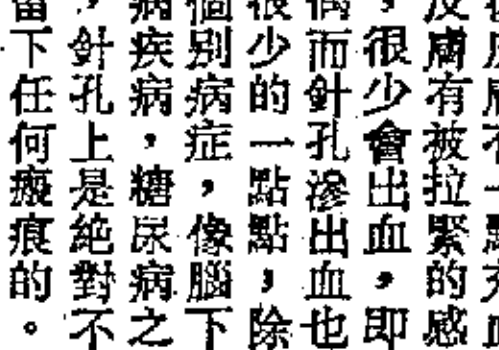 膚有被拉緊的感
，很少會出血，即
偶而針孔滲出血也
很少的一點點，除
個別病症，像腦下
病疾病，糖尿病之
，針孔上是絕對不
留下任何瘢痕的。